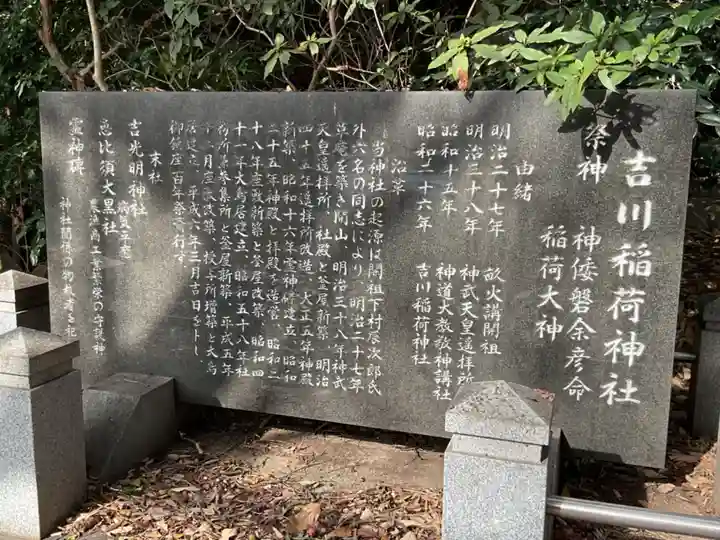 吉川稲荷神社
祭神　神倭磐余彦命
稲荷大神
由緒
明治二十七年　畝火講開祖
明治三十八年　神武天皇遥拝所
昭和十五年　神道大教敬神講社
昭和二十六年　吉川稲荷神社
沿革
当神社の起源は開祖下村辰次郎氏
外六名の同志により、明治二十七年
草庵を築き開山、明治三十八年神武
天皇遥拝所、社殿と釜屋新築、明治
四十五年遥拝所改造、大正五年神殿
新築、昭和十六年霊神碑建立、昭和
二十五年神殿と拝殿を造営、昭和二
十八年座敷新築と釜屋改築、昭和四
十一年大鳥居建立、昭和五十八年社
務所兼参集所と釜屋新築、平成五年
十二月座敷改築、授与所増築と大鳥
居建立、平成六年三月吉日を卜し
御鎮座百年祭斎行す
末社
吉光明神社　病気平癒
恵比須大黒社　農漁商工業繁栄の守護神
霊神碑　神社関係の物故者を祀